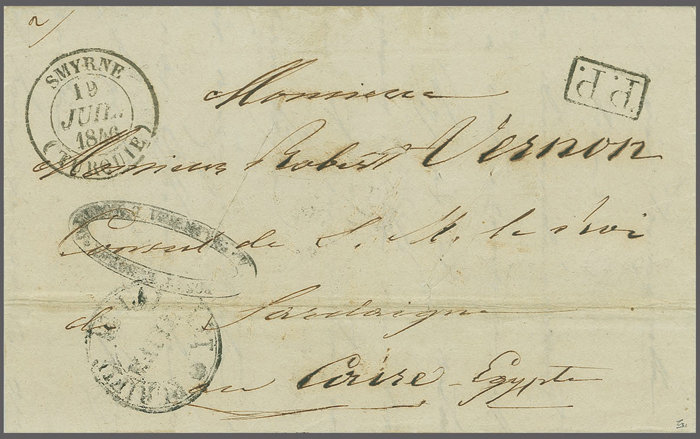 SMYRNE
19
JUIL.
1846
(TURQUIE)
P.P.
Monsieur
Monsieur Robert Vernon
Consul de S. M. le Roi
de Sardaigne
au Caire - Egypte